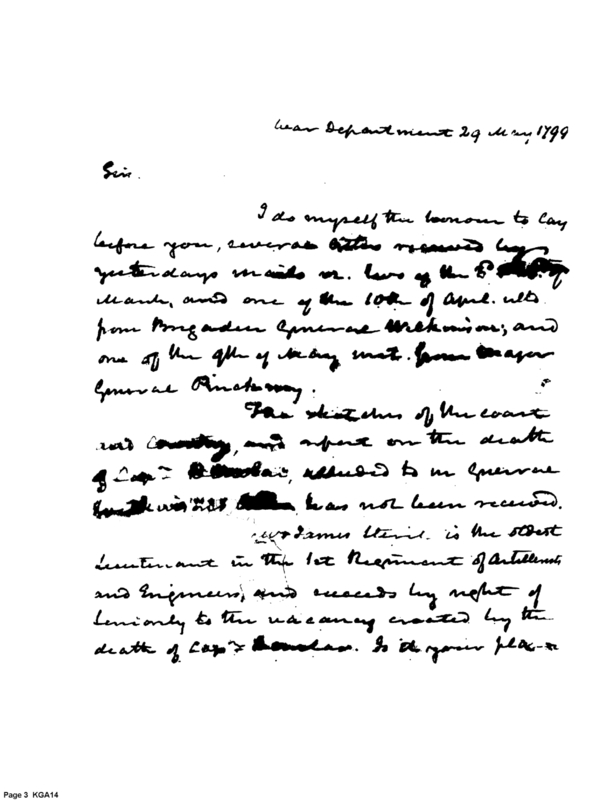 War Department 29 May, 1799
Sir.
I do myself the honour to lay
before you, several letters received by
yesterdays mails viz. two of the
March, and one of the 10th of April. ulto
from Brigadier General Wilkinson; and
one of the 9th of May inst. from Major
General Pinckney.
The sketches of the coast
and Country, and report on the death
of Capn alluded to in General
has not been received.
James is the oldest
Lieutenant in the 1st Regiment of Artillerists
and Engineers, and succeeds by right of
Seniority to the vacancy created by the
death of Capn Is it your plea-
Page 3 KGA14